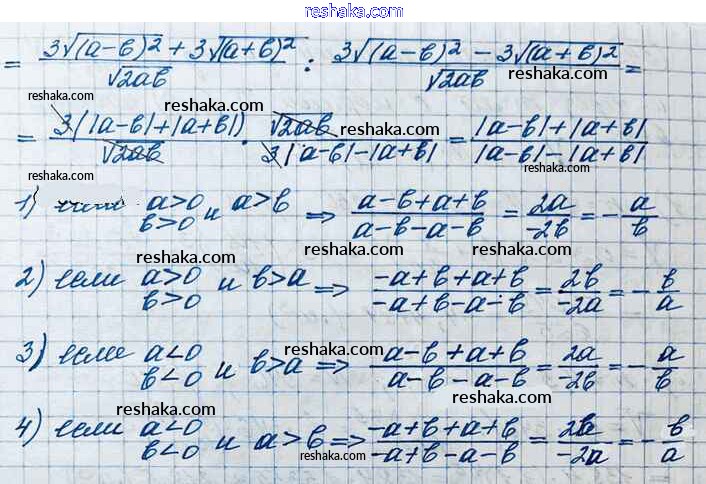 reshaka.com
= 3√(a-b)² + 3√(a+b)² / √2ab : 3√(a-b)² - 3√(a+b)² / √2ab =
reshaka.com
reshaka.com
reshaka.com
= 3(|a-b|+|a+b|) / √2ab · √2ab / 3|a-b|-|a+b| = |a-b|+|a+b| / |a-b|-|a+b|
reshaka.com
reshaka.com
reshaka.com
1) если a>0 b>0 и a>b ⇒ a-b+a+b / a-b-a-b = 2a / -2b = - a / b
reshaka.com
reshaka.com
2) если a>0 b>0 и b>a ⇒ -a+b+a+b / -a+b-a-b = 2b / -2a = - b / a
reshaka.com
reshaka.com
reshaka.com
3) если a<0 b<0 и b>a ⇒ a-b+a+b / a-b-a-b = 2a / -2b = - a / b
reshaka.com
reshaka.com
4) если a<0 b<0 и a>b ⇒ -a+b+a+b / -a+b-a-b = 2b / -2a = - b / a
reshaka.com
reshaka.com